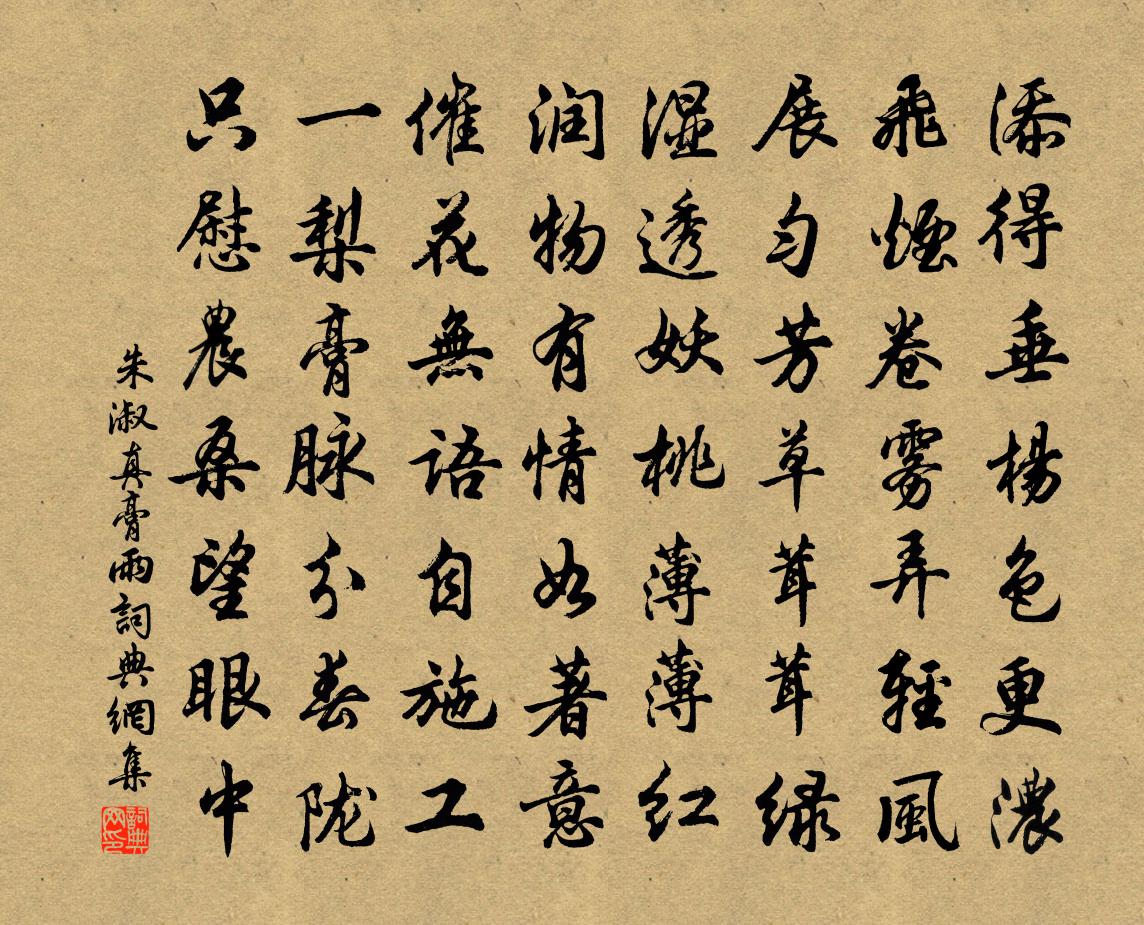 添得垂楊色更濃
飛煙卷雾弄輕風
展匀芳草茸茸绿
湿透妖桃薄薄红
润物有情如著意
催花無語自施工
一梨膏脉分春陇
只慰農桑望眼中
朱淑真膏雨詞典網集
詞典网印